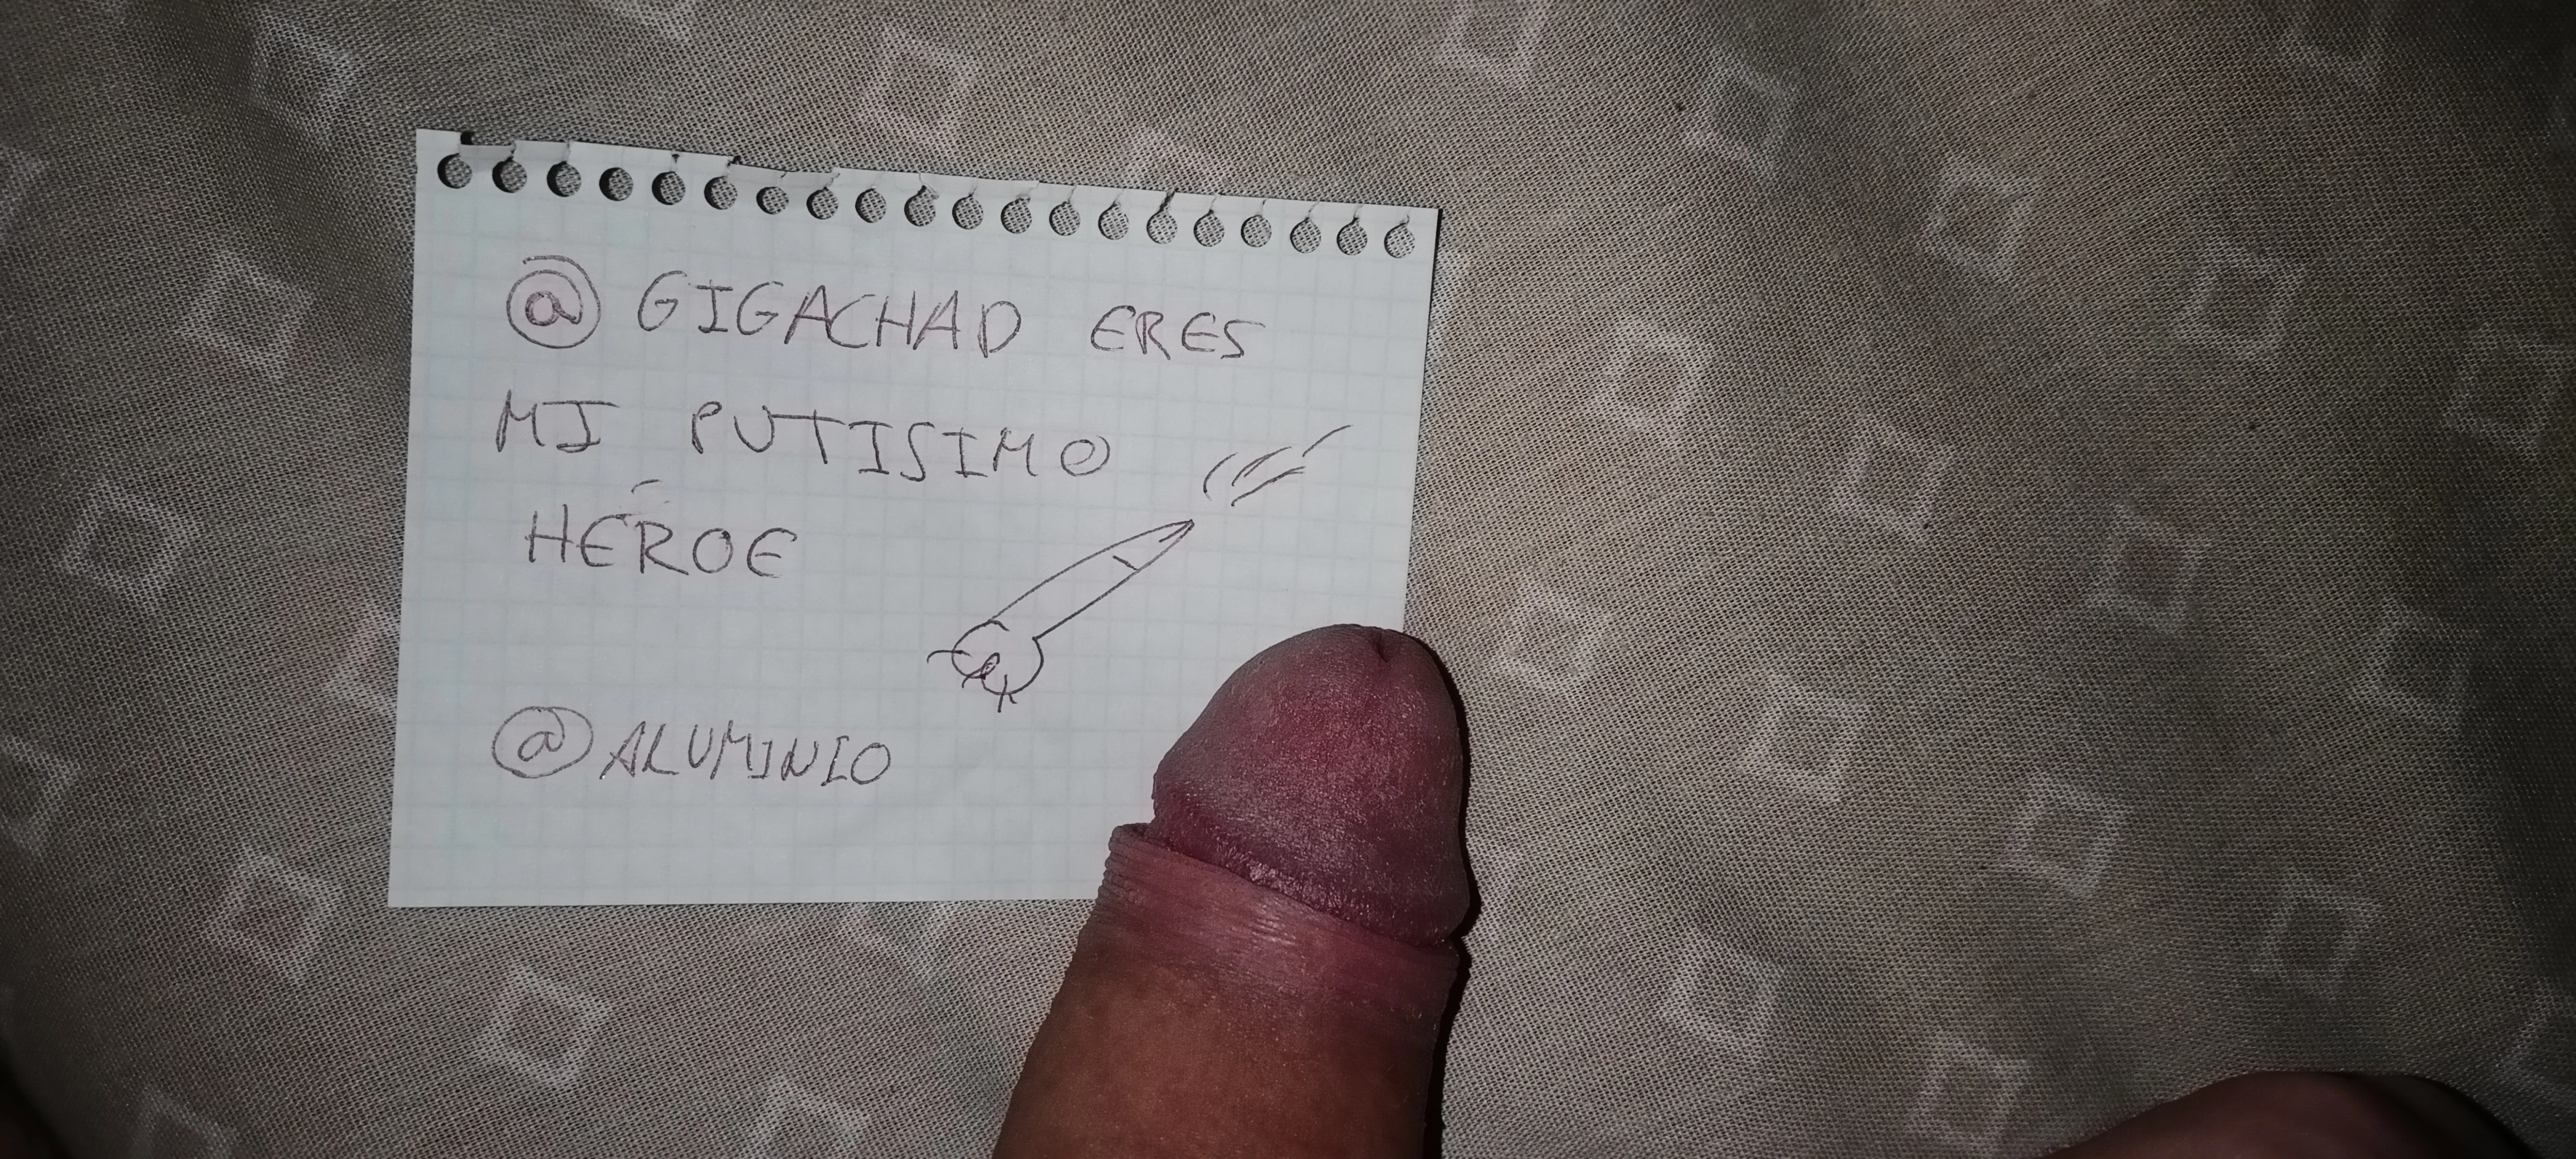 @ GIGACHAD ERES
MI PUTISIMO
HÉROE
@ ALUMINIO